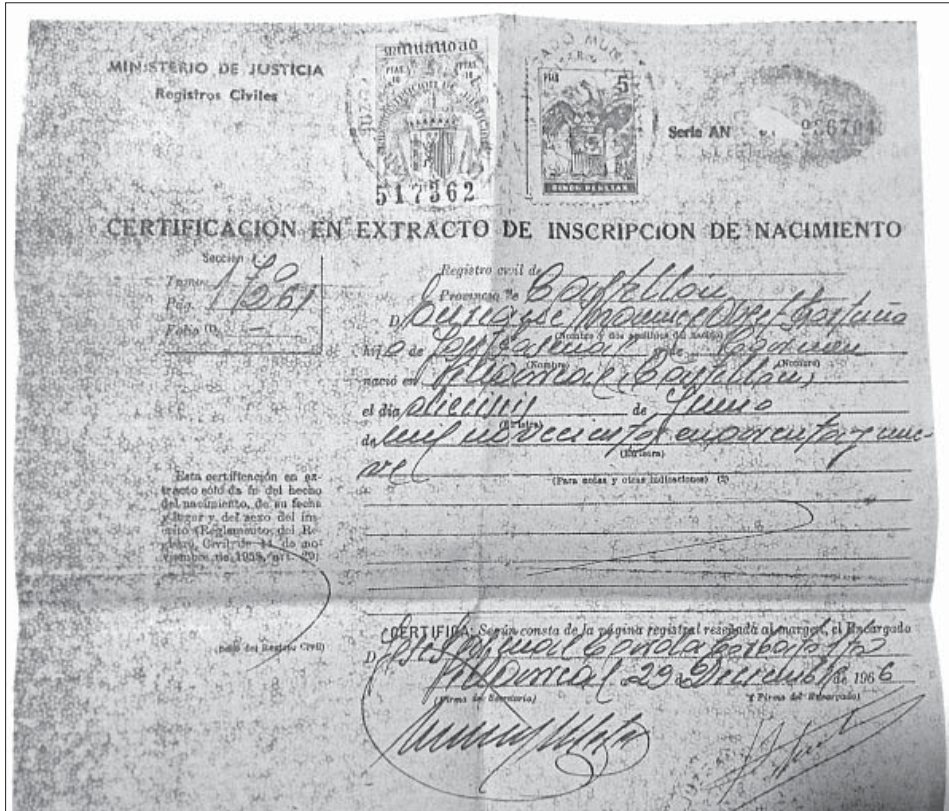 MINISTERIO DE JUSTICIA
Registros Civiles
mutualidad
PTAS. 10
PTAS. 10
517362
5
CINCO PESETAS
Serie AN
CERTIFICACION EN EXTRACTO DE INSCRIPCION DE NACIMIENTO
Sección 1.ª
Tomo
Pág. 261
Folio (1) —
Registro civil de
Provincia de Castellón
D.
(Nombre y dos apellidos del inscrito)
hijo de José Pascual y de Carmen
(Nombre) (Nombre)
nació en Villarreal (Castellón)
el día dieciséis de Junio
(En letra)
de mil novecientos cuarenta y nue-
(En letra)
ve
(Para notas y otras indicaciones) (2)
Esta certificación en ex-
tracto sólo da fe del hecho
del nacimiento, de su fecha
y lugar y del sexo del ins-
crito (Reglamento del Re-
gistro Civil de 14 de no-
viembre de 1958, art. 29)
(Sello del Registro Civil)
CERTIFICA: Según consta de la página registral reseñada al margen, el Encargado
D.
Villarreal 29 de Diciembre de 1966
(Firma del Secretario) (Firma del Encargado)